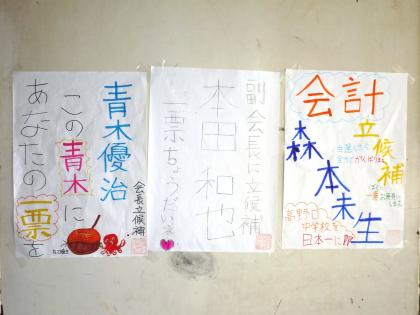 会長立候補
青木優治
この青木に
あなたの一票を
副会長に立候補
本田和也
一票ちょうだい
会計
立候補
森本未生
当選したら
全力でがんばります
一票お願い
します
高野口
中学校を
日本一に